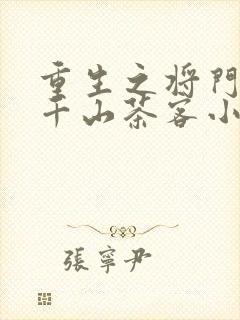 重生之将門
千山茶客小
張寧尹